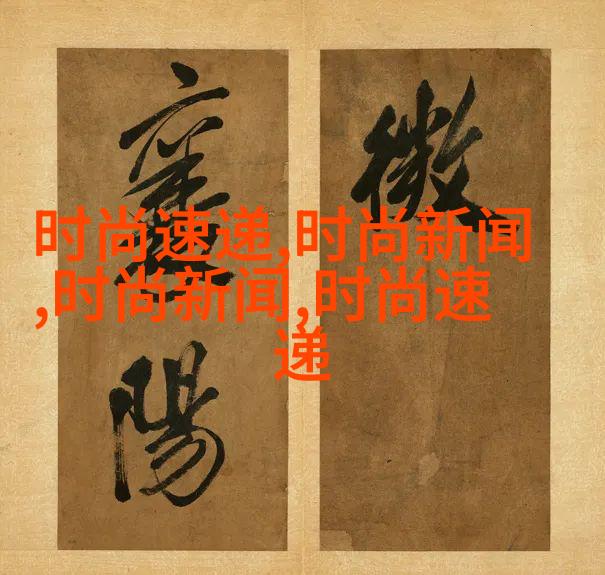 时尚速递,时尚新闻
,时尚新闻,时尚速
递
微
襄陽